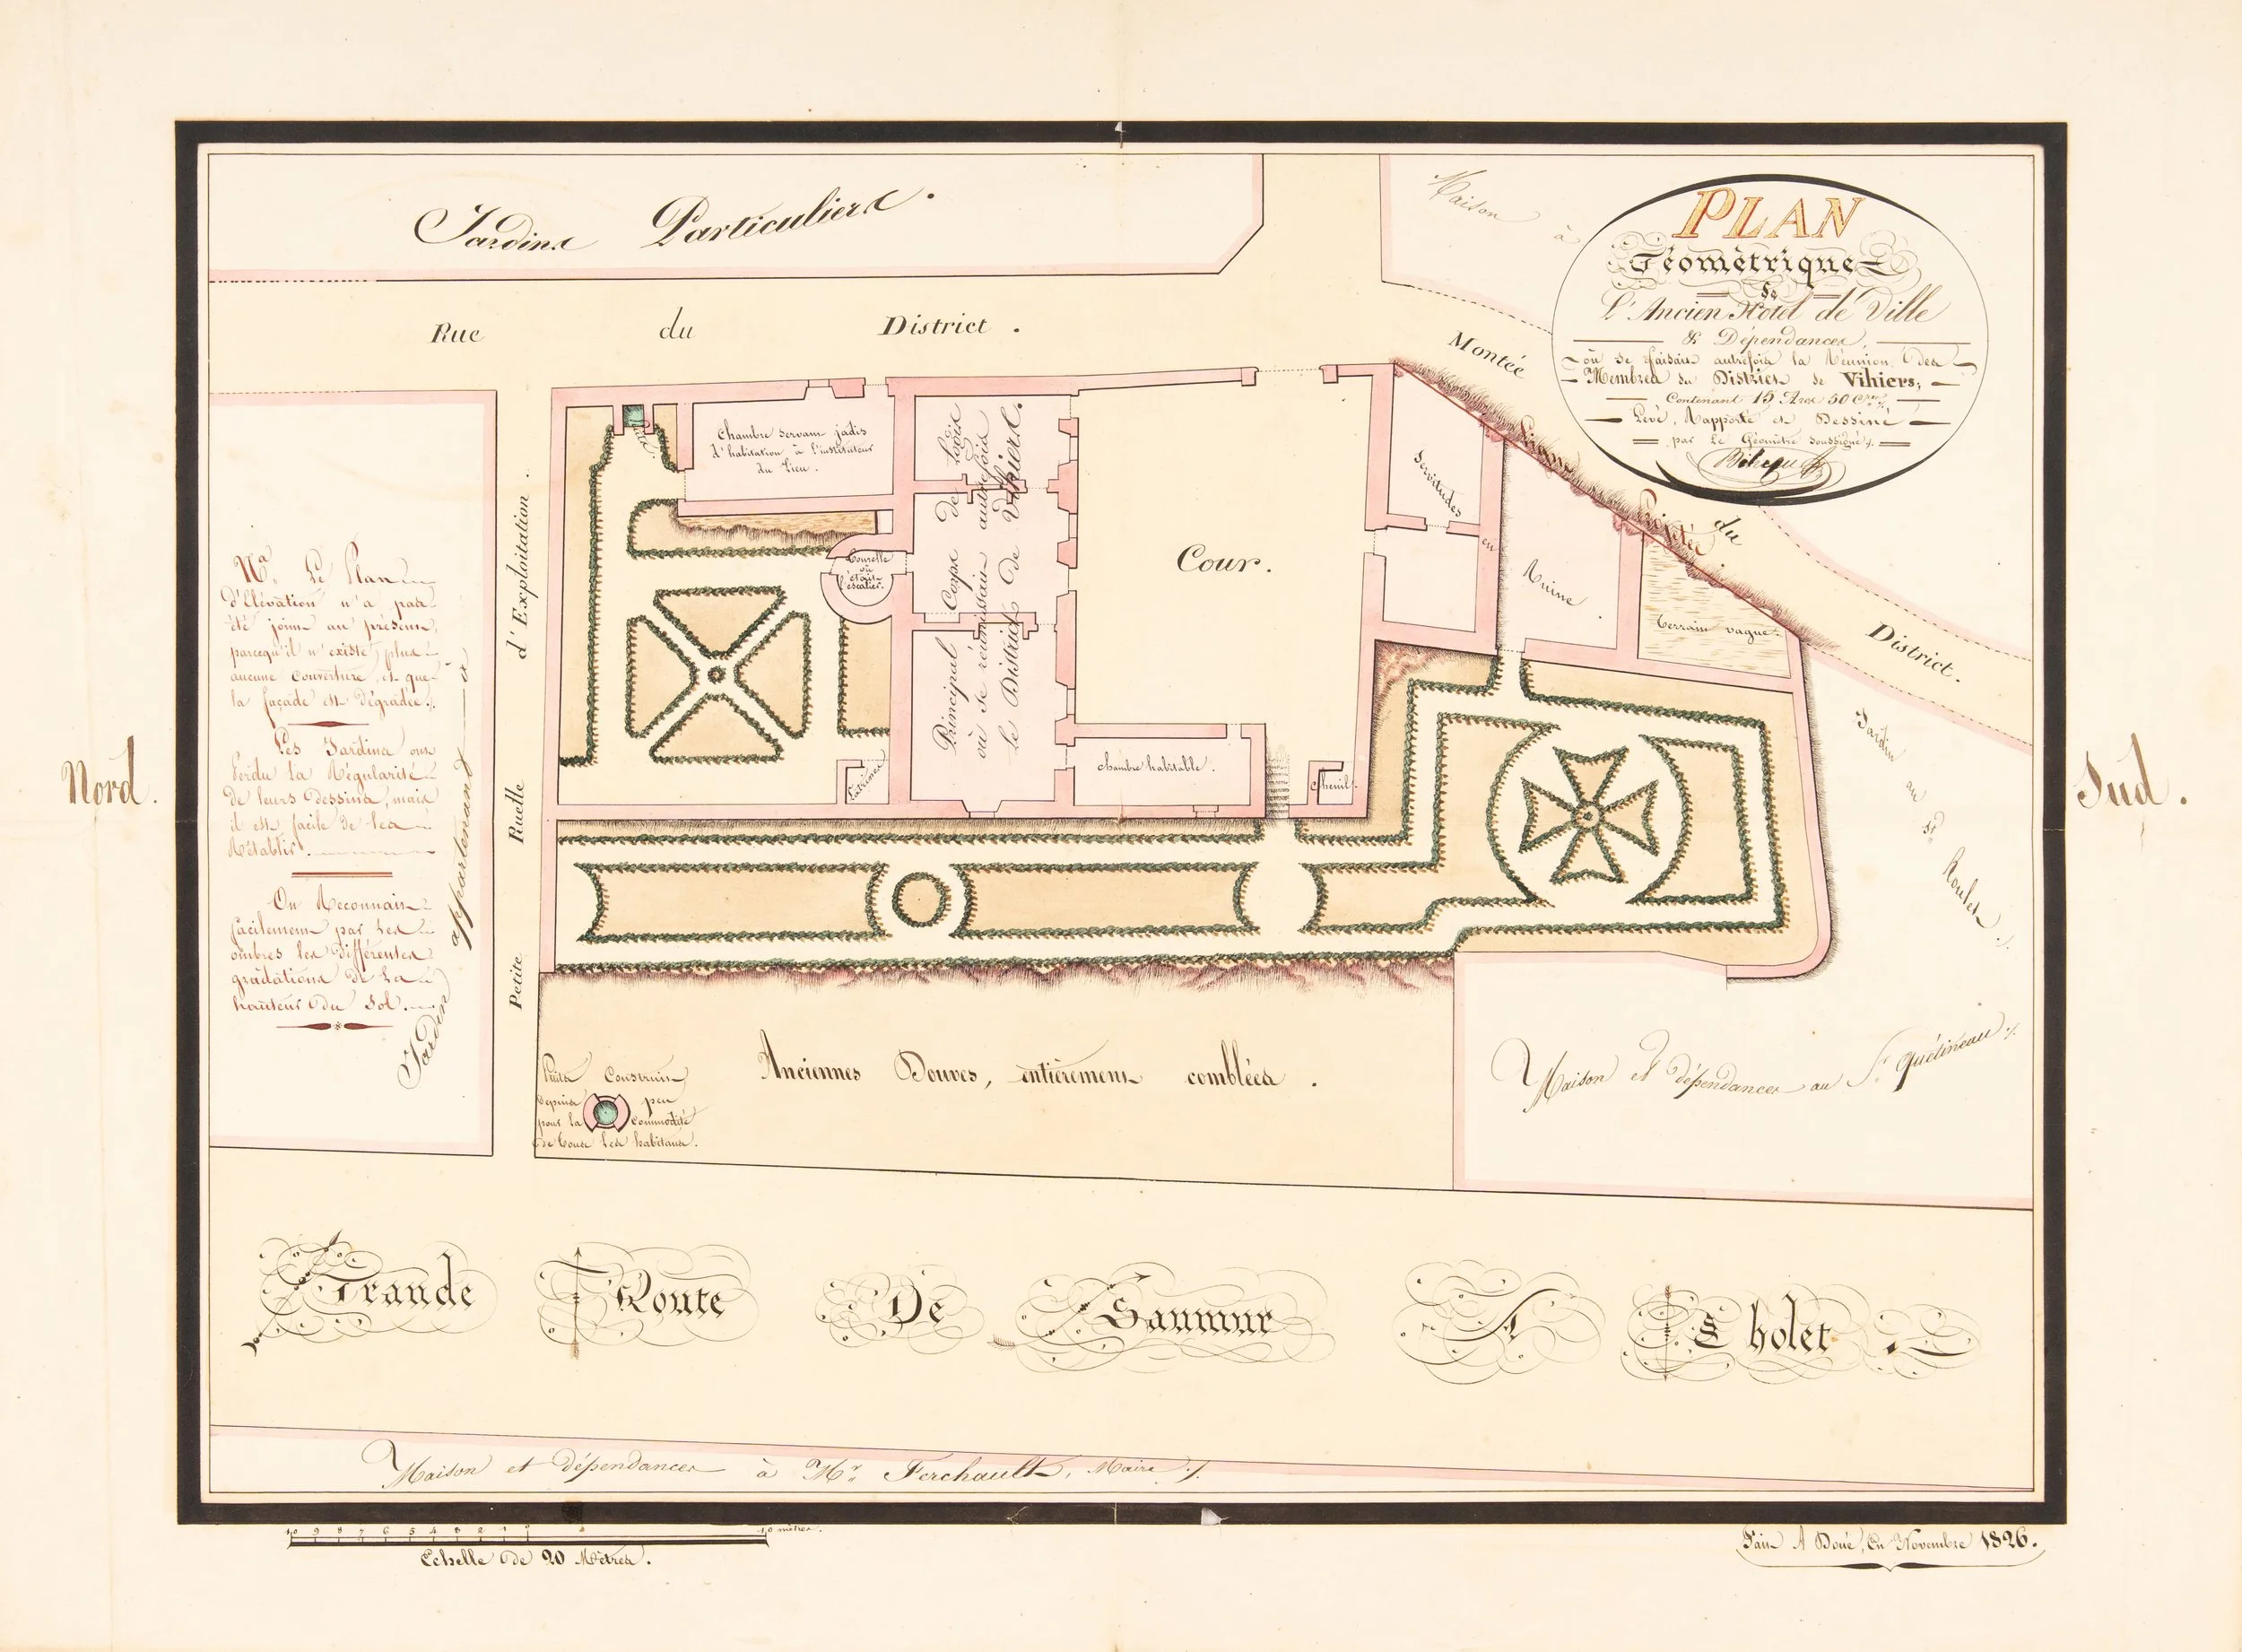 Jardins Particuliers.
Maison à
PLAN
Géométrique
de
L'Ancien Hotel de Ville
& Dépendances,
où se faisait autrefois la Réunion des
Membres du District de Vihiers;
Contenant 15 Ares 50 C.
Levé, Rapporté et Dessiné
par Le Géomètre soussigné.
Rue du District.
Montée du District.
Ligne Projetée
Chambre servant jadis
d'habitation à l'instituteur
du Lieu.
Tourelle
où
était
l'escalier.
Principal Corps de Logis
où se réunissait autrefois
le District de Vihiers.
Cour.
Servitudes
en
Ruine
Terrain vague.
Latrines
chambre habitable.
Chenil.
Petite Ruelle d'Exploitation.
Jardin appartenant à
Jardin au Sr. Roulet
Nord.
Sud.
Na. Le Plan
d'Elévation n'a pas
été joint au présent,
parcequ'il n'existe plus
aucune couverture, et que
la façade est Dégradée.
Les Jardins ont
Perdu la Régularité
de leurs Dessins, mais
il est facile de les
Rétablir.
On Reconnait
facilement par les
ombres les différentes
gradations de la
hauteur du Sol.
Puits Construit
Depuis peu
pour la Commodité
de tous les habitans.
Anciennes Douves, entièrement comblées.
Maison et dépendances au Sr. Quétineau
Grande Route De Saumur A Cholet.
Maison et dépendances à Mr. Ferchault, Maire.
10 9 8 7 6 5 4 3 2 1 0 10 mètres.
Echelle de 20 Mètres.
Fait A Doué, En Novembre 1826.